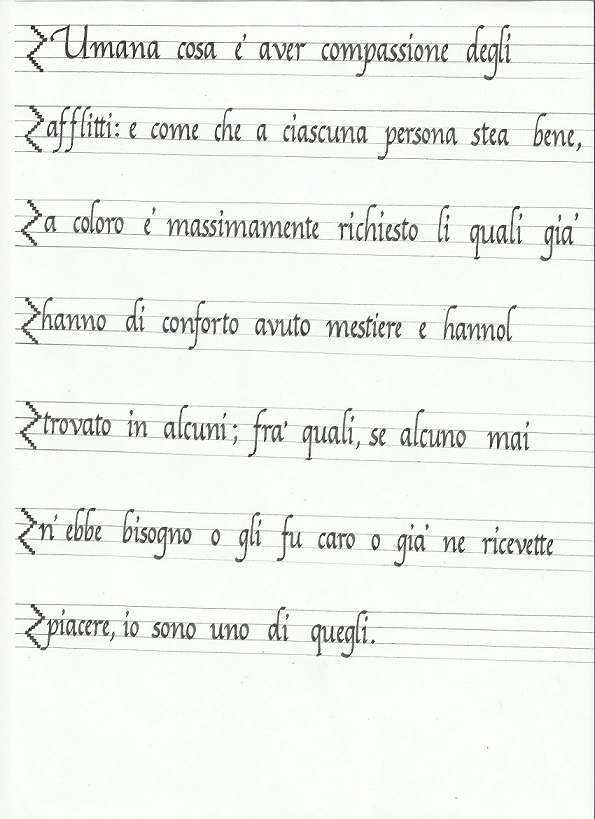 Umana cosa e' aver compassione degli
afflitti: e come che a ciascuna persona stea bene,
a coloro e' massimamente richiesto li quali gia'
hanno di conforto avuto mestiere e hannol
trovato in alcuni; fra' quali, se alcuno mai
n'ebbe bisogno o gli fu caro o gia' ne ricevette
piacere, io sono uno di quegli.